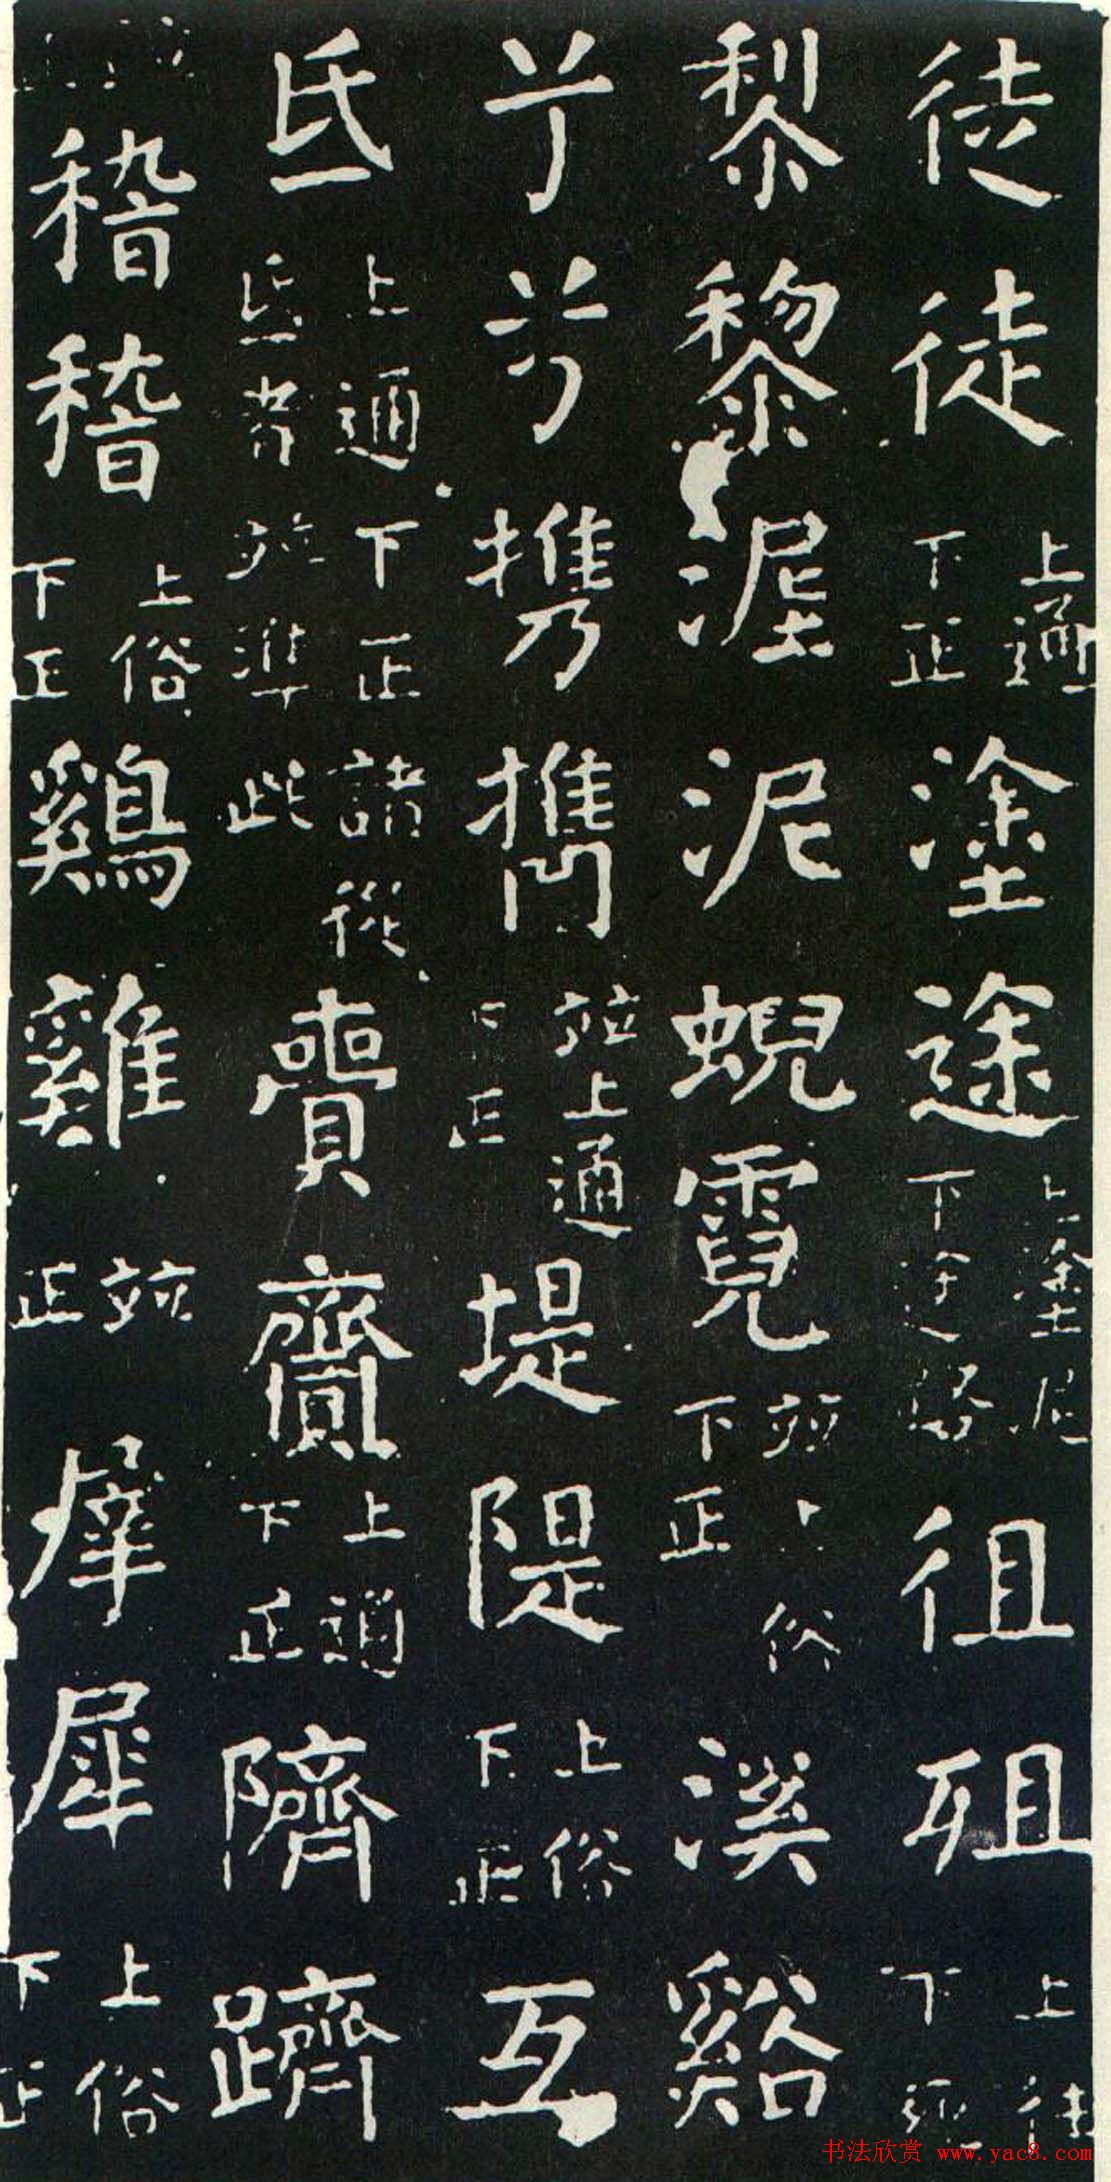 徒徒上通下正塗途上塗泥下途路徂殂上往下死
黎黎埿泥蜺霓並上俗下正溪谿
兮兮携攜並上通下正堤隄上俗下正互
氐上通下正諸從氐者並準此賷齎上通下正隮躋
稽稽上俗下正鷄雞並正犀上俗下正
书法欣赏 www.yac8.com